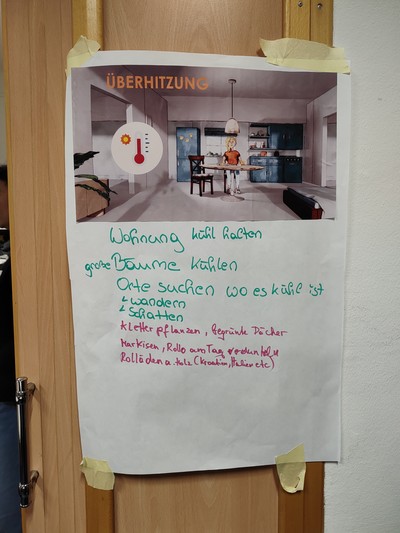 ÜBERHITZUNG
Wohnung kühl halten
große Bäume kühlen
Orte suchen wo es kühl ist
↳ wandern
↳ Schatten
Kletterpflanzen, Begrünte Dächer
Markisen, Rollo am Tag verdunkeln
Rolläden a. Holz (Kroatien, Italien etc)